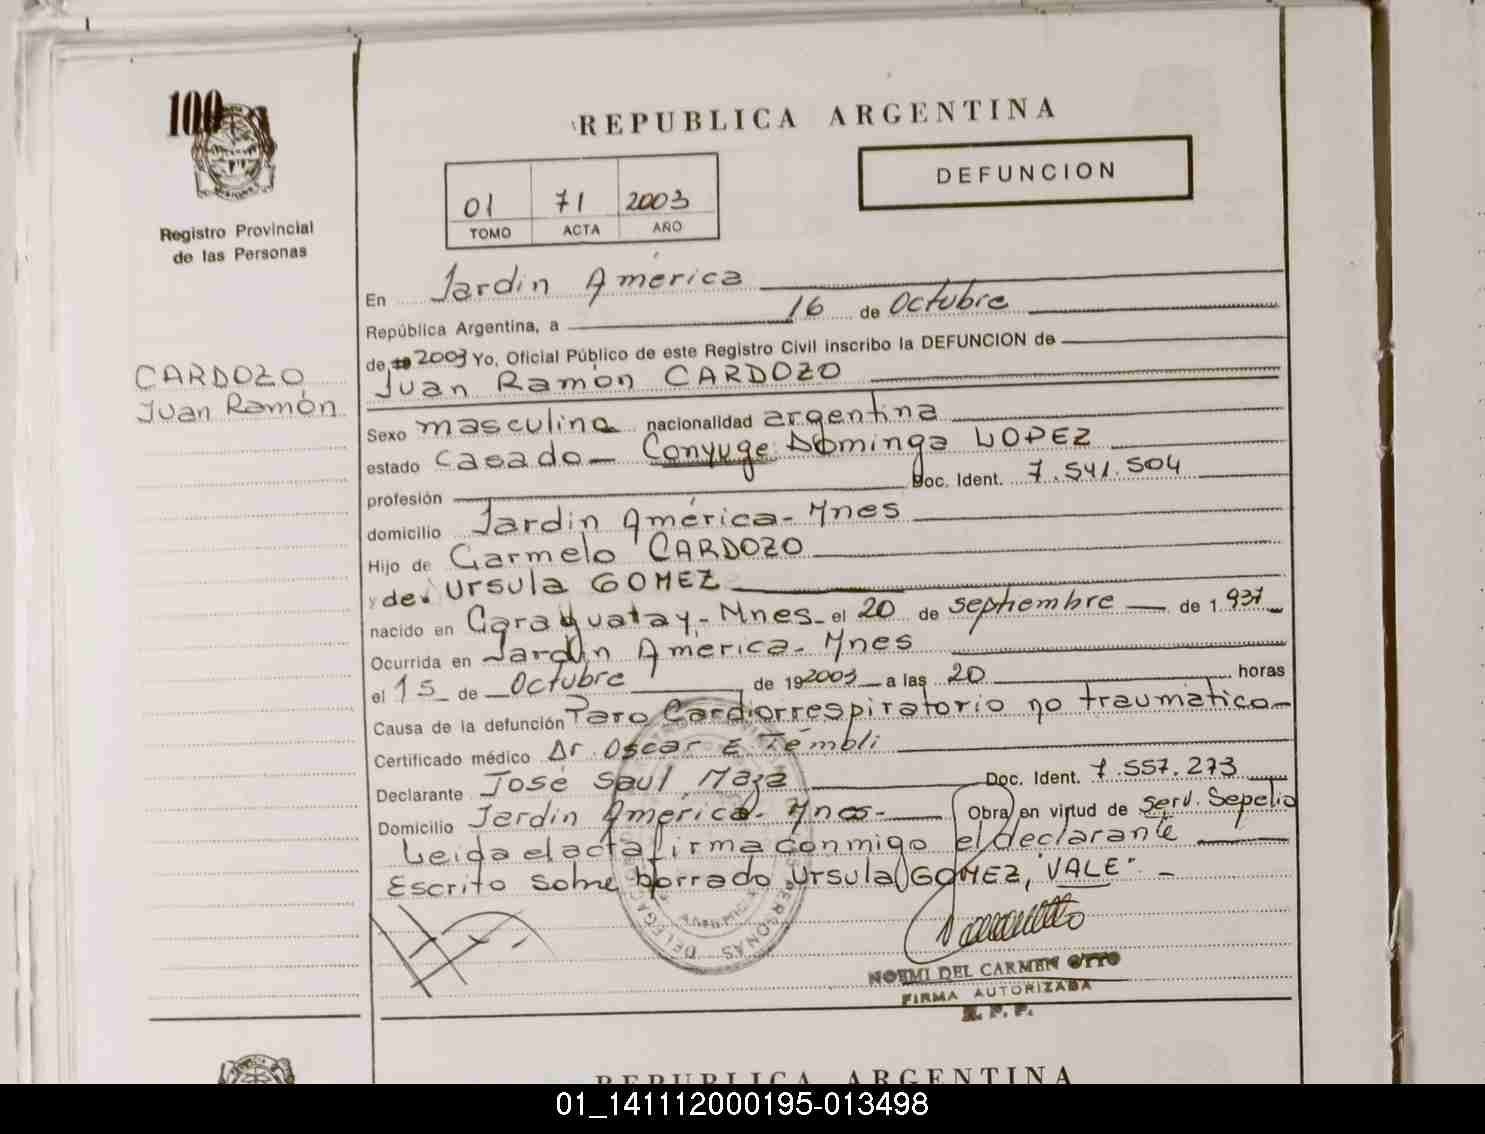 100
REPUBLICA ARGENTINA
DEFUNCION
01 71 2003
TOMO ACTA AÑO
Registro Provincial
de las Personas
CARDOZO
Juan Ramón
En Jardin América
República Argentina, a 16 de Octubre
de 2003 Yo, Oficial Público de este Registro Civil inscribo la DEFUNCION de
Juan Ramón CARDOZO
Sexo masculino nacionalidad argentina
estado casado - Conyuge Dominga LOPEZ
profesión Doc. Ident. 7.541.504
domicilio Jardin América - Mnes
Hijo de Carmelo CARDOZO
y de Ursula GOMEZ
nacido en Caraguatay - Mnes - el 20 de septiembre de 1.931
Ocurrida en Jardin América - Mnes
el 15 de Octubre de 192003 a las 20 horas
Causa de la defunción Paro Cardiorrespiratorio no traumatico -
Certificado médico Dr. Oscar E. Témbli
Declarante José Saul Maza Doc. Ident. 7.557.273
Domicilio Jardin América - Mnes - Obra en virtud de serv. Sepelio
Leida el acta firma conmigo el declarante
Escrito sobre borrado Ursula GOMEZ, "VALE" -
NOEMI DEL CARMEN OTTO
FIRMA AUTORIZADA
R. P. P.
REPUBLICA ARGENTINA
01_141112000195-013498